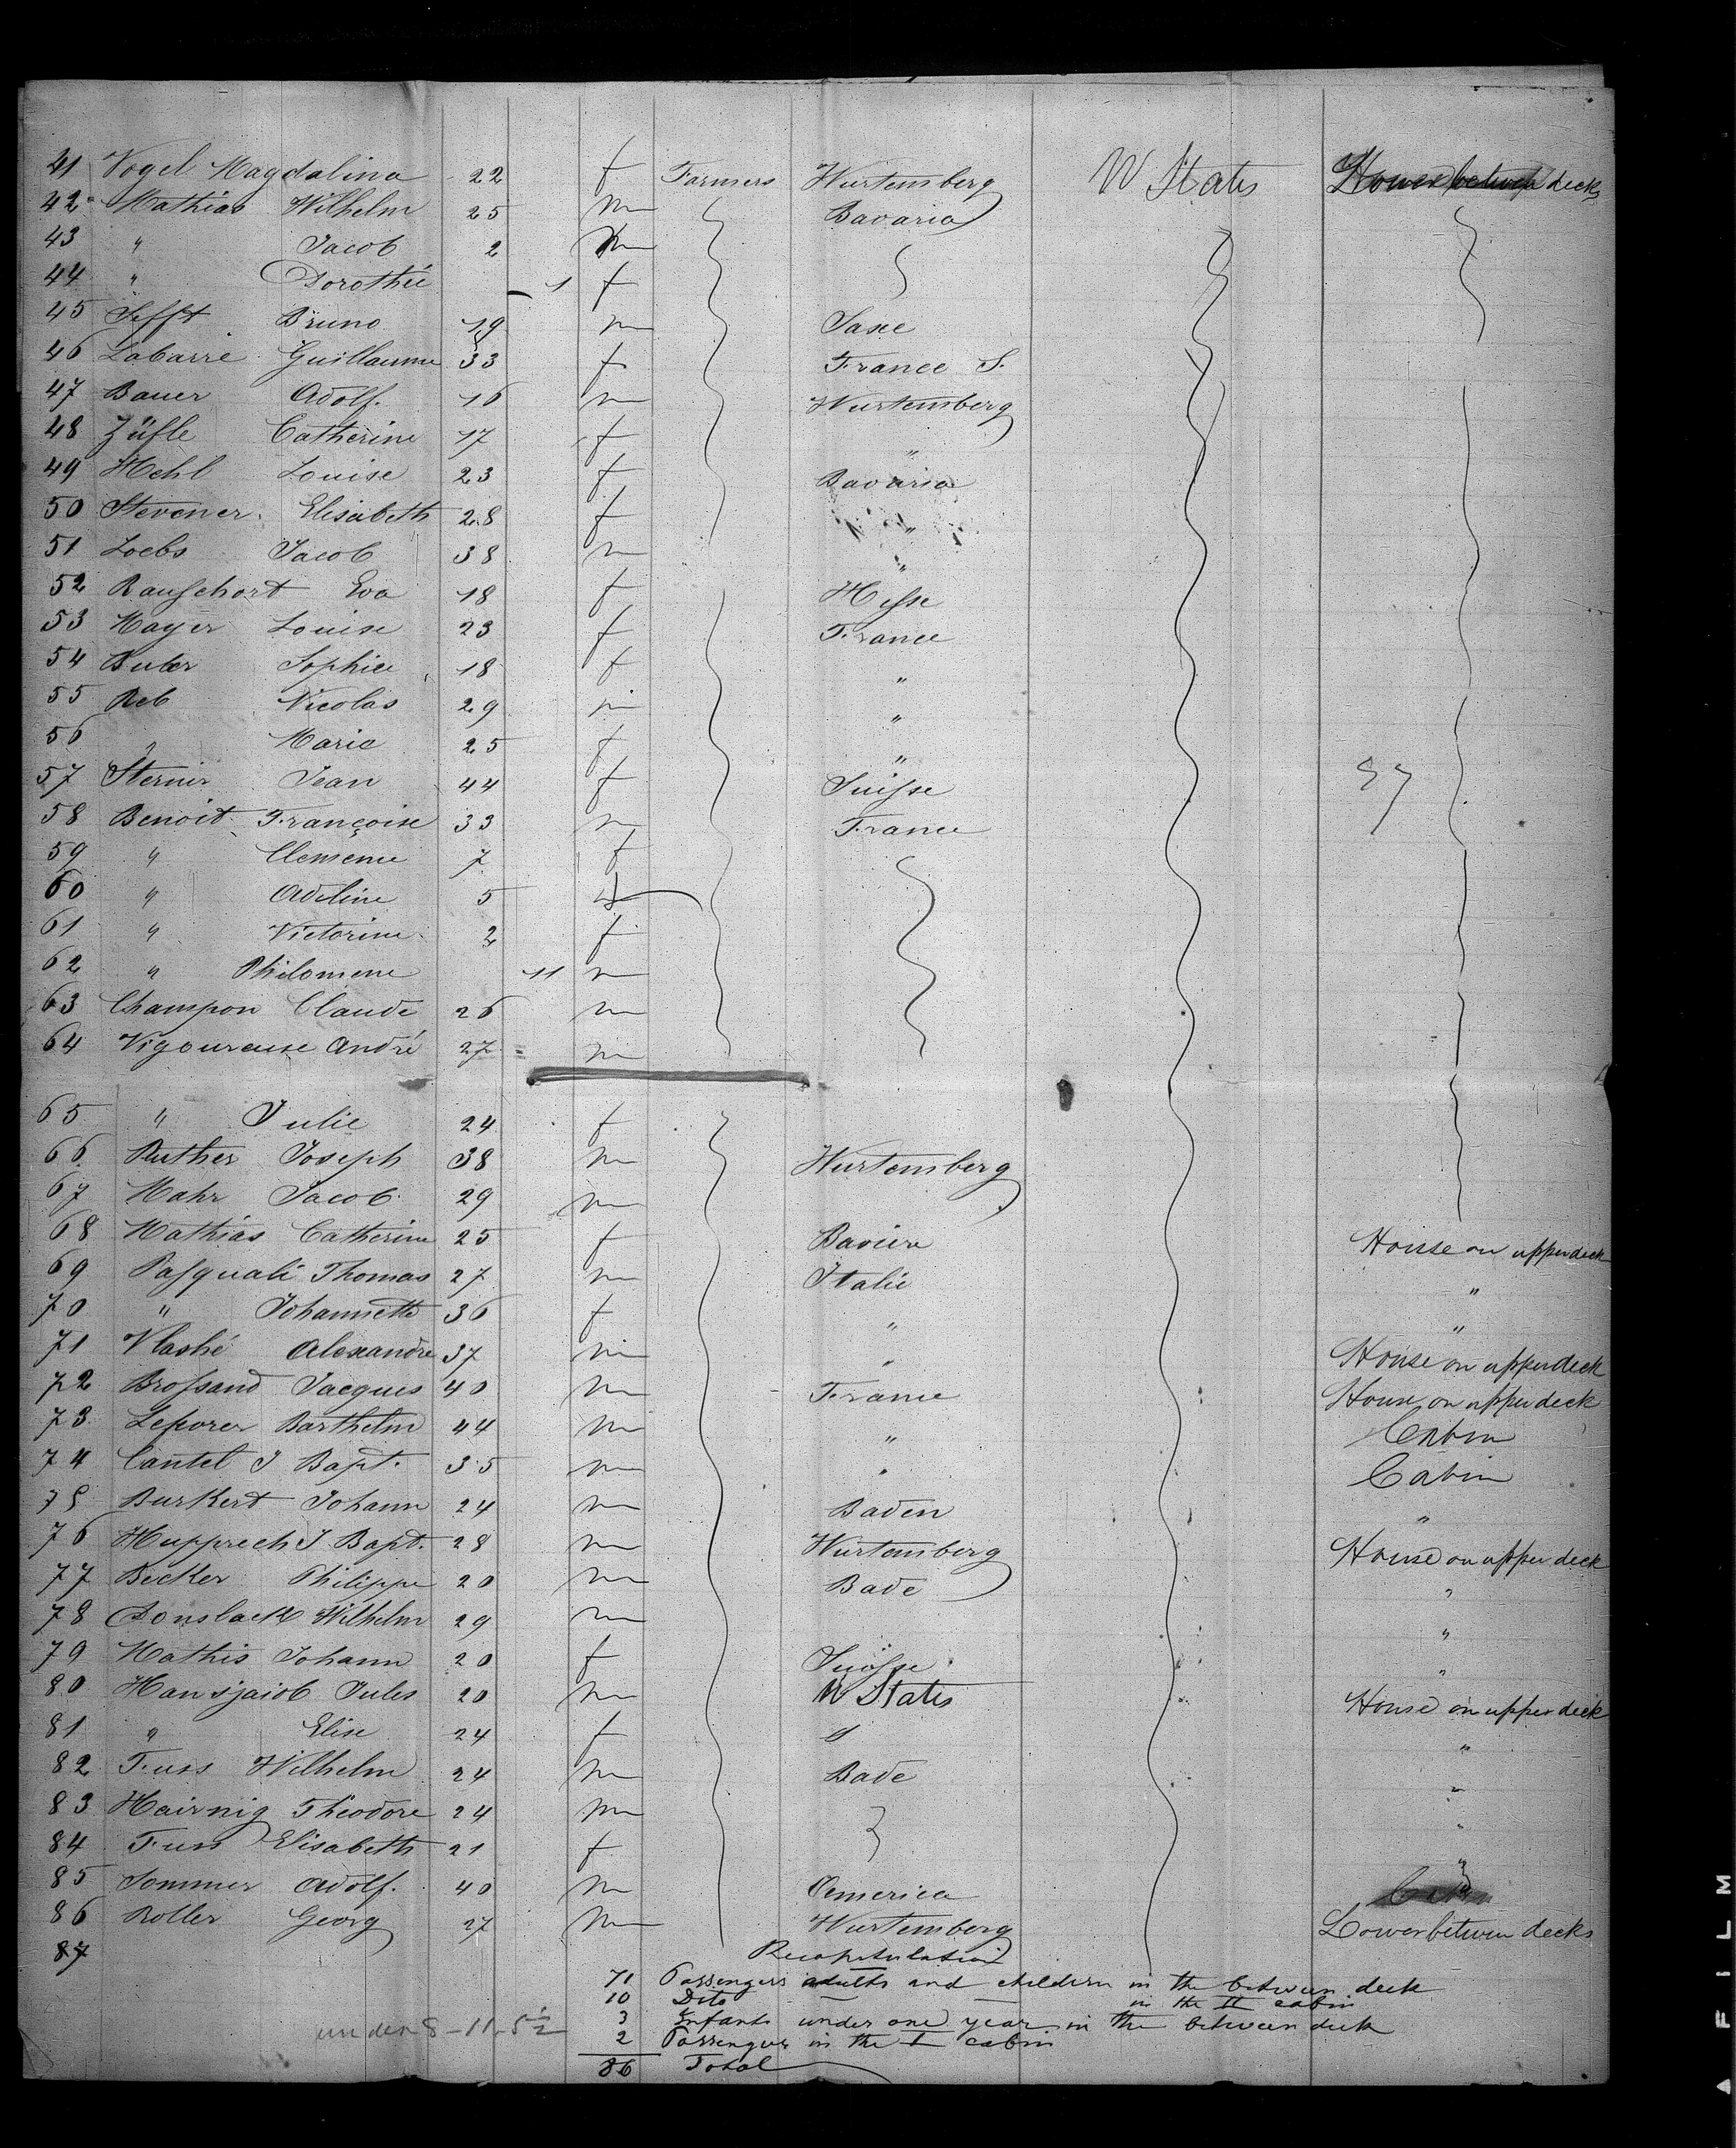 41 Vogel Magdalina 22 f Farmers Wurtemberg W States Lower between decks
42 Mathias Wilhelm 25 m Bavaria
43 " Jacob 2 m
44 " Dorothée 1 f
45 Sefft Bruno 19 m Saxe
46 Labarre Guillaume 33 f France S.
47 Bauer Adolf. 16 m Wurtemberg
48 Züfle Catherine 17 f "
49 Mehl Louise 23 f Bavaria
50 Stevener Elisabeth 28 f "
51 Loebs Jacob 38 m "
52 Rauschort Eva 18 f Hesse
53 Mayer Louise 23 f France
54 Buter Sophie 18 f "
55 Reb Nicolas 29 m "
56 " Marie 25 f "
57 Sternir Jean 44 f Suisse
58 Benoit Françoise 33 m France
59 " Clemence 7 f
60 " Adeline 5 f
61 " Victorine 2 f
62 " Philomene 11 m
63 Champon Claude 26 m
64 Vigoureuse André 27 m
65 " Julie 24 f
66 Ruther Joseph 38 m Wurtemberg
67 Mahr Jacob 29 m
68 Mathias Catherine 25 f Baviere House on upper deck
69 Pasquali Thomas 27 m Italie "
70 " Johannette 36 f " "
71 Vlashé Alexandre 37 m " House on upper deck
72 Brossand Jacques 40 m France House on upper deck
73 Leporer Barthelm 44 m " Cabin
74 Cantel J Bapt. 35 m " Cabin
75 Burkert Johann 24 m Baden "
76 Hupprech J Bapt. 28 m Wurtemberg House on upper deck
77 Becker Philippe 20 m Bade "
78 Donsback Wilhelm 29 m "
79 Mathis Johann 20 f Suisse "
80 Hansjaiob Jules 20 m U States House on upper deck
81 " Elise 24 f " "
82 Fuss Wilhelm 24 m Bade "
83 Hairnig Theodore 24 m "
84 Fuss Elisabeth 21 f "
85 Sommer Adolf. 40 m America
86 Roller Georg 27 m Wurtemberg Lower between decks
87
Recapitulation
71 Passengers adults and children in the between deck
10 Dito in the II cabin
3 Infants under one year in the between deck
under 8 - 11 - 5½ 2 Passengers in the I cabin
86 Total
FILM